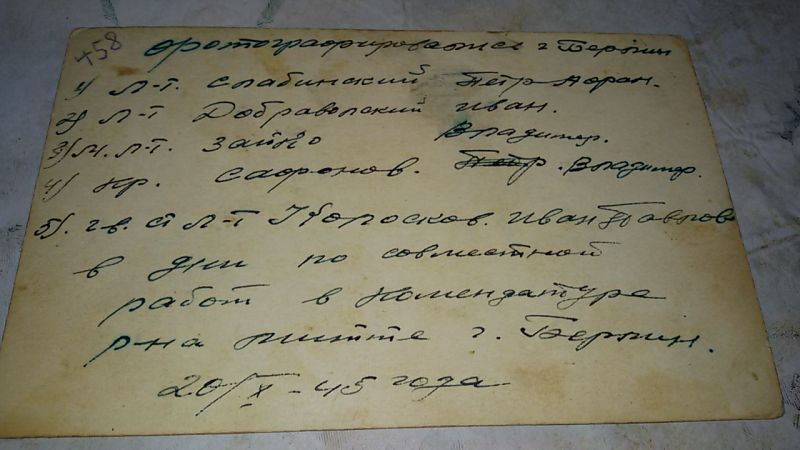 458
Фотографировались г Берлин
1) Л-т. Слабинский Пётр Афан.
2) Л-т Добравольский Иван.
3) М. Л-т. Зайко Владимер.
4) Кр. Сафонов. Пётр. Владимер.
5). гв. ст Л-т Колосков. Иван Павлов
в дни по совместной
работ в комендатуре
р-на митте г. Берлин.
20/X-45 года